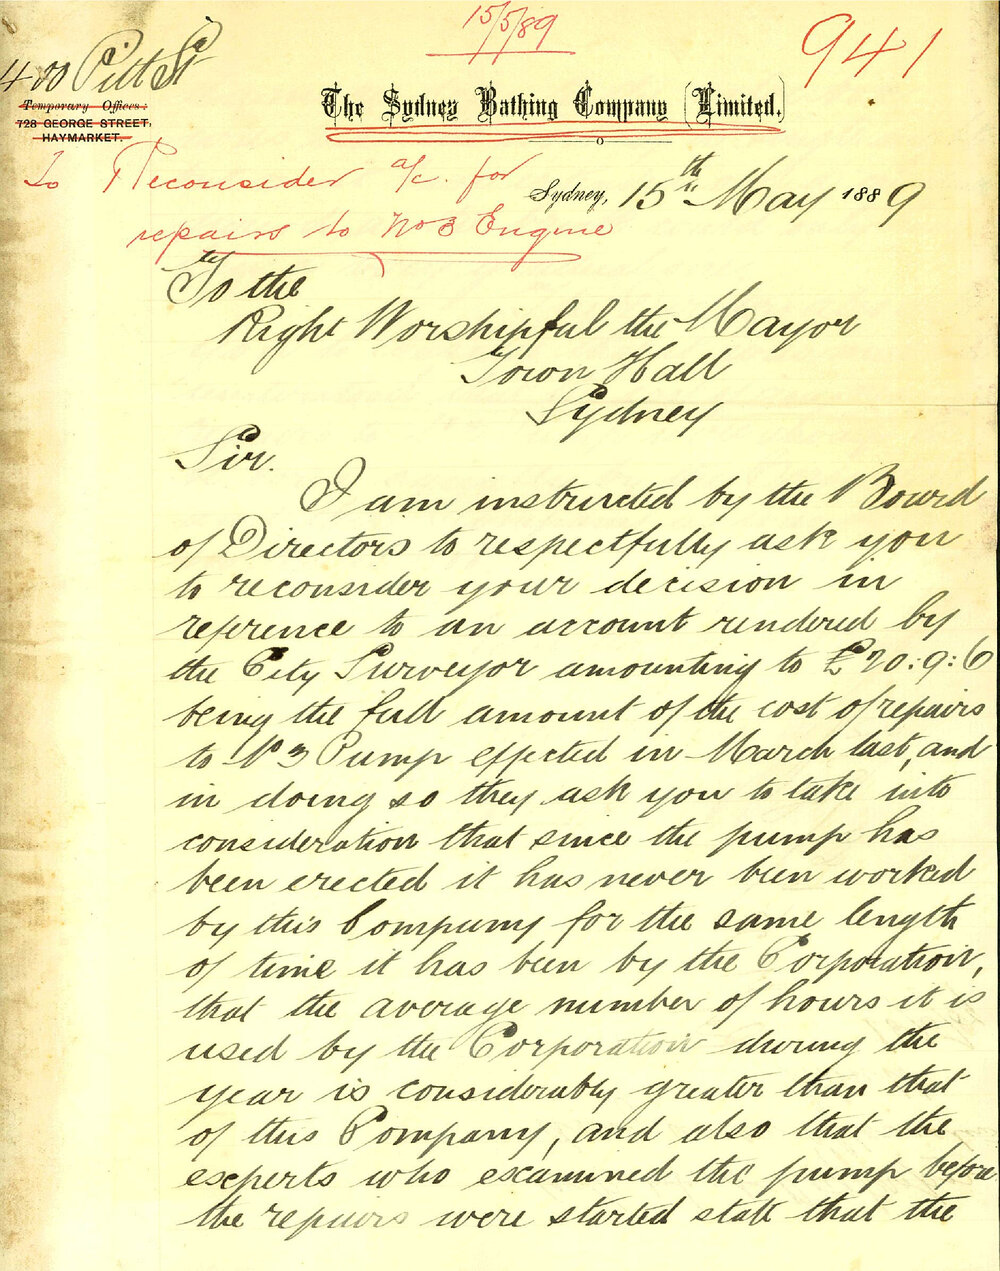 15/5/89
941
400 Pitt St
Temporary Offices:
728 GEORGE STREET,
HAYMARKET.
The Sydney Bathing Company (Limited.)
To Reconsider a/c. for
repairs to No 3 Engine
Sydney, 15th May 1889
To the
Right Worshipful the Mayor
Town Hall
Sydney
Sir.
I am instructed by the Board
of Directors to respectfully ask you
to reconsider your decision in
reference to an account rendered by
the City Surveyor amounting to £20:9:6
being the full amount of the cost of repairs
to No 3 Pump effected in March last, and
in doing so they ask you to take into
consideration that since the pump has
been erected it has never been worked
by this Company for the same length
of time it has been by the Corporation,
that the average number of hours it is
used by the Corporation during the
year is considerably greater than that
of this Company, and also that the
experts who examined the pump before
the repairs were started state that the